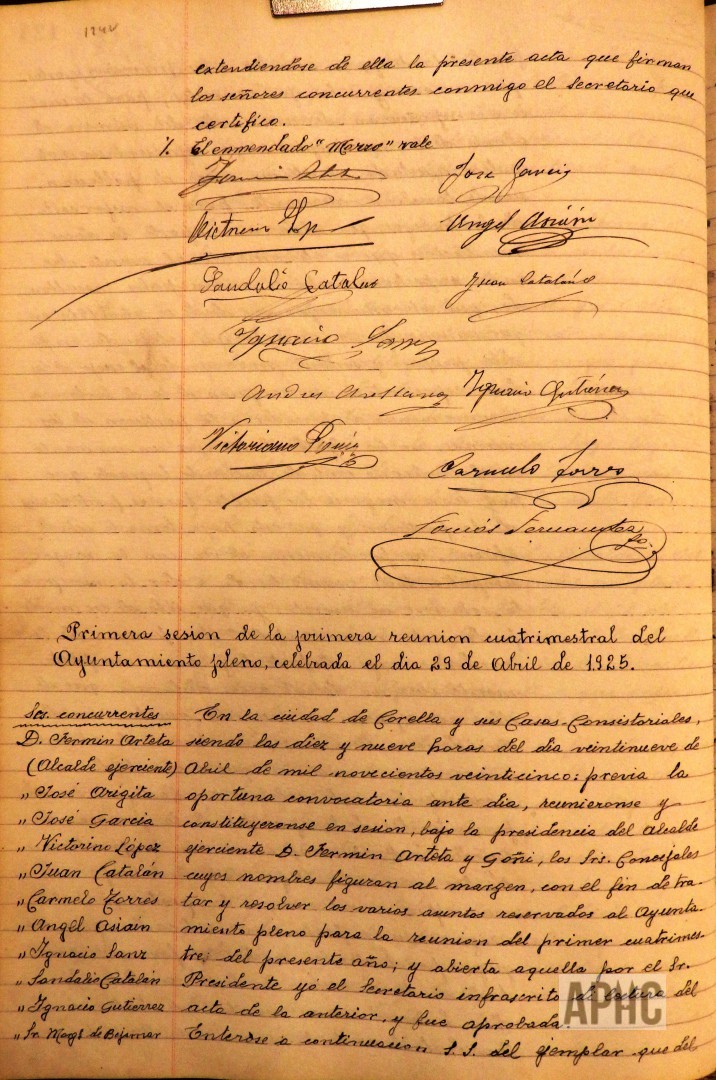 124v
extendiendose de ella la presente acta que firman
los señores concurrentes conmigo el Secretario que
certifico.
El enmendado "Marzo" vale
José García
Angel Asiáin
Sandalio Catalán
Juan Catalán
Ignacio Sanz
Andres Arellano Ignacio Gutiérrez
Victoriano
Carmelo Torres
Tomás Fernandez
Primera sesion de la primera reunion cuatrimestral del
Ayuntamiento pleno, celebrada el dia 29 de Abril de 1.925.
Ses. concurrentes
D. Fermin Arteta
(Alcalde ejerciente)
" José Arigita
" José García
" Victorino López
" Juan Catalán
" Carmelo Torres
" Angel Asiain
" Ignacio Sanz
" Sandalio Catalán
" Ignacio Gutierrez
" Sr. Marqs. de Bajamar
En la ciudad de Corella y sus Casas-Consistoriales,
siendo las diez y nueve horas del dia veintinueve de
Abril de mil novecientos veinticinco: previa la
oportuna convocatoria ante dia, reunieronse y
constituyeronse en sesion, bajo la presidencia del Alcalde
ejerciente D. Fermin Arteta y Goñi, los Srs. Concejales
cuyos nombres figuran al margen, con el fin de tra-
tar y resolver los varios asuntos reservados al Ayunta-
miento pleno para la reunion del primer cuatrimes-
tre, del presente año; y abierta aquella por el Sr.
Presidente yó el Secretario infrascrito dí lectura del
acta de la anterior, y fue aprobada.
Enterose a continuacion S. S. del ejemplar que del
APHC